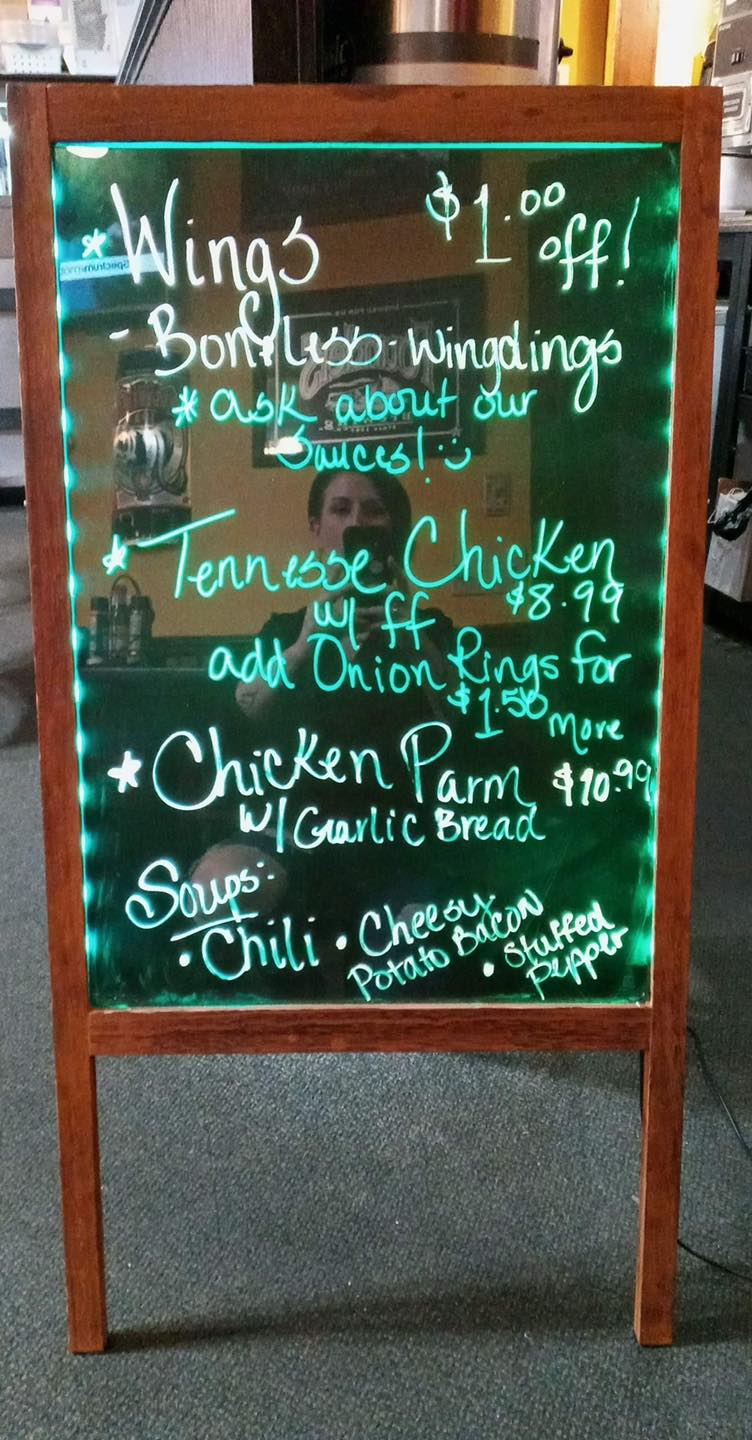 * Wings $1.00 off!
- Boneless - Wingdings
* ask about our
Sauces! :)
* Tennesse Chicken
w/ ff $8.99
add Onion Rings for
$1.50 more
* Chicken Parm $10.99
w/ Garlic Bread
Soups:
• Chili • Cheesy
Potato Bacon
• Stuffed
Pepper